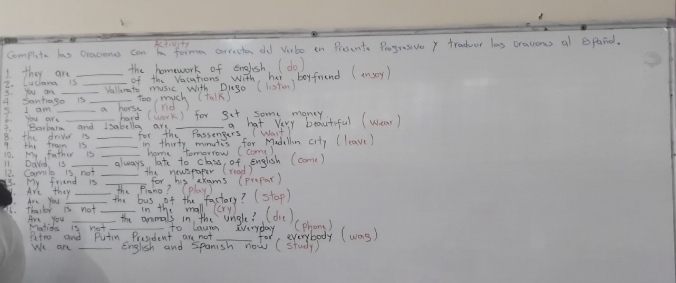 Activity
Complete las Oraciones con la forma correcta del Verbo en Presente Progresivo y traducir las oraciones al Español.
1. They are ______ the homework of English (do)
2. Luciana is ______ of the Vacations with her boyfriend (enjoy)
3. You are ______ Vallenato music with Diego (listen)
4. Santiago is ______ too much (talk)
5. I am ______ a horse (rid)
6. You are ______ hard (work) for get some money
7. Barbara and Isabella are ______ a hat very beautiful (wear)
8. the driver is ______ for the Passengers (wait)
9. the train is ______ in thirty minutes for Medellin city (leave)
10. My father is ______ home tomorrow (come)
11. David is ______ always late to class of English (come)
12. Camilo is not ______ the newspaper (read)
13. My friend is ______ for his exams (prepar)
Are they ______ the Piano? (play)
Are You ______ the bus of the factory? (stop)
is not ______ in the mall (cry)
Are You ______ the animals in the ungle? (die)
Matilda is not ______ to Laura everyday (phone)
Petro and Putin President are not ______ for everybody (wag)
We are ______ English and Spanish now (study)